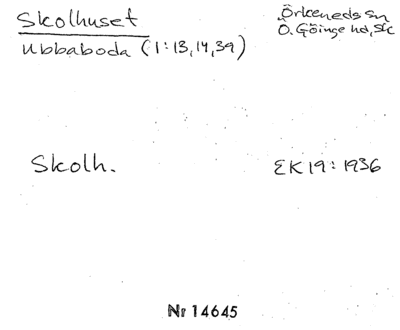 Skolhuset
Örkeneds sn
Ubbaboda (1:13,14,39)
Ö. Göinge hd, Sk
Skolh.
EK 19:1936
Nr 14645